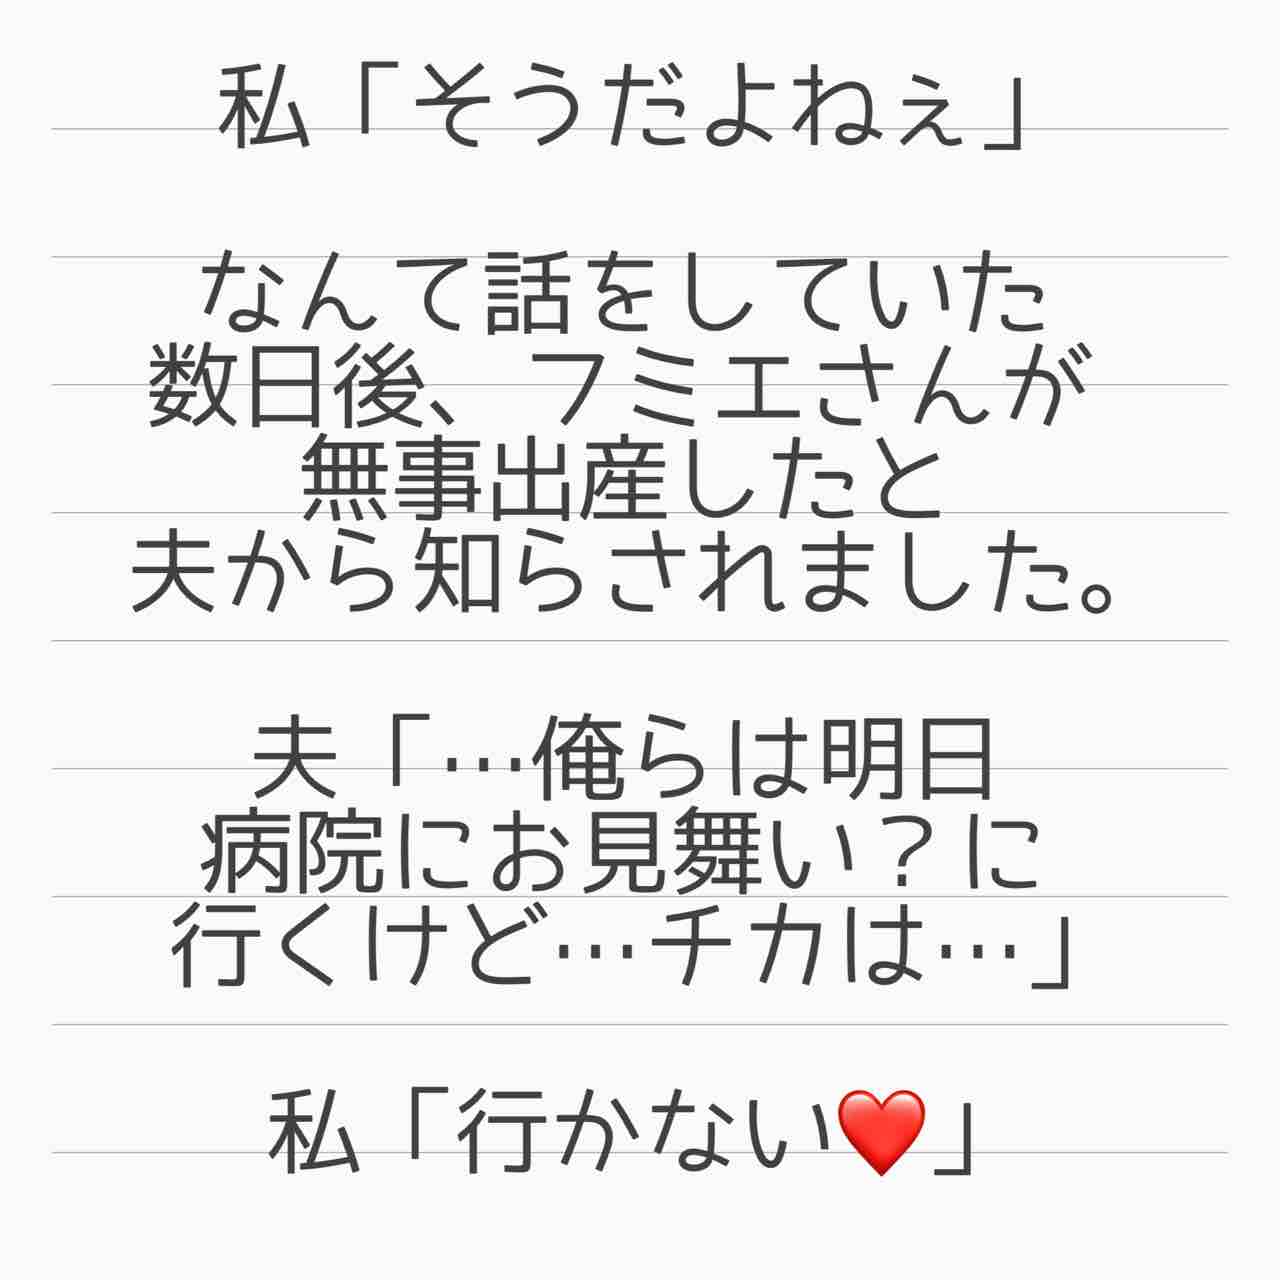 私「そうだよねぇ」
なんて話をしていた
数日後、フミエさんが
無事出産したと
夫から知らされました。
夫「…俺らは明日
病院にお見舞い？に
行くけど…チカは…」
私「行かない❤️」